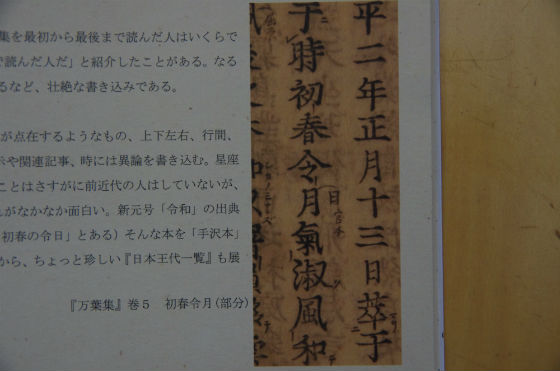 集を最初から最後まで読んだ人はいくらで
で読んだ人だ」と紹介したことがある。なる
るなど、壮絶な書き込みである。
が点在するようなもの、上下左右、行間、
示や関連記事、時には異論を書き込む。星座
ことはさすがに前近代の人はしていないが、
れがなかなか面白い。新元号「令和」の出典
初春の令日」とある）そんな本を「手沢本」
から、ちょっと珍しい『日本王代一覧』も展
『万葉集』巻５　初春令月(部分)
平二年正月十三日萃于
于時初春令月氣淑風和